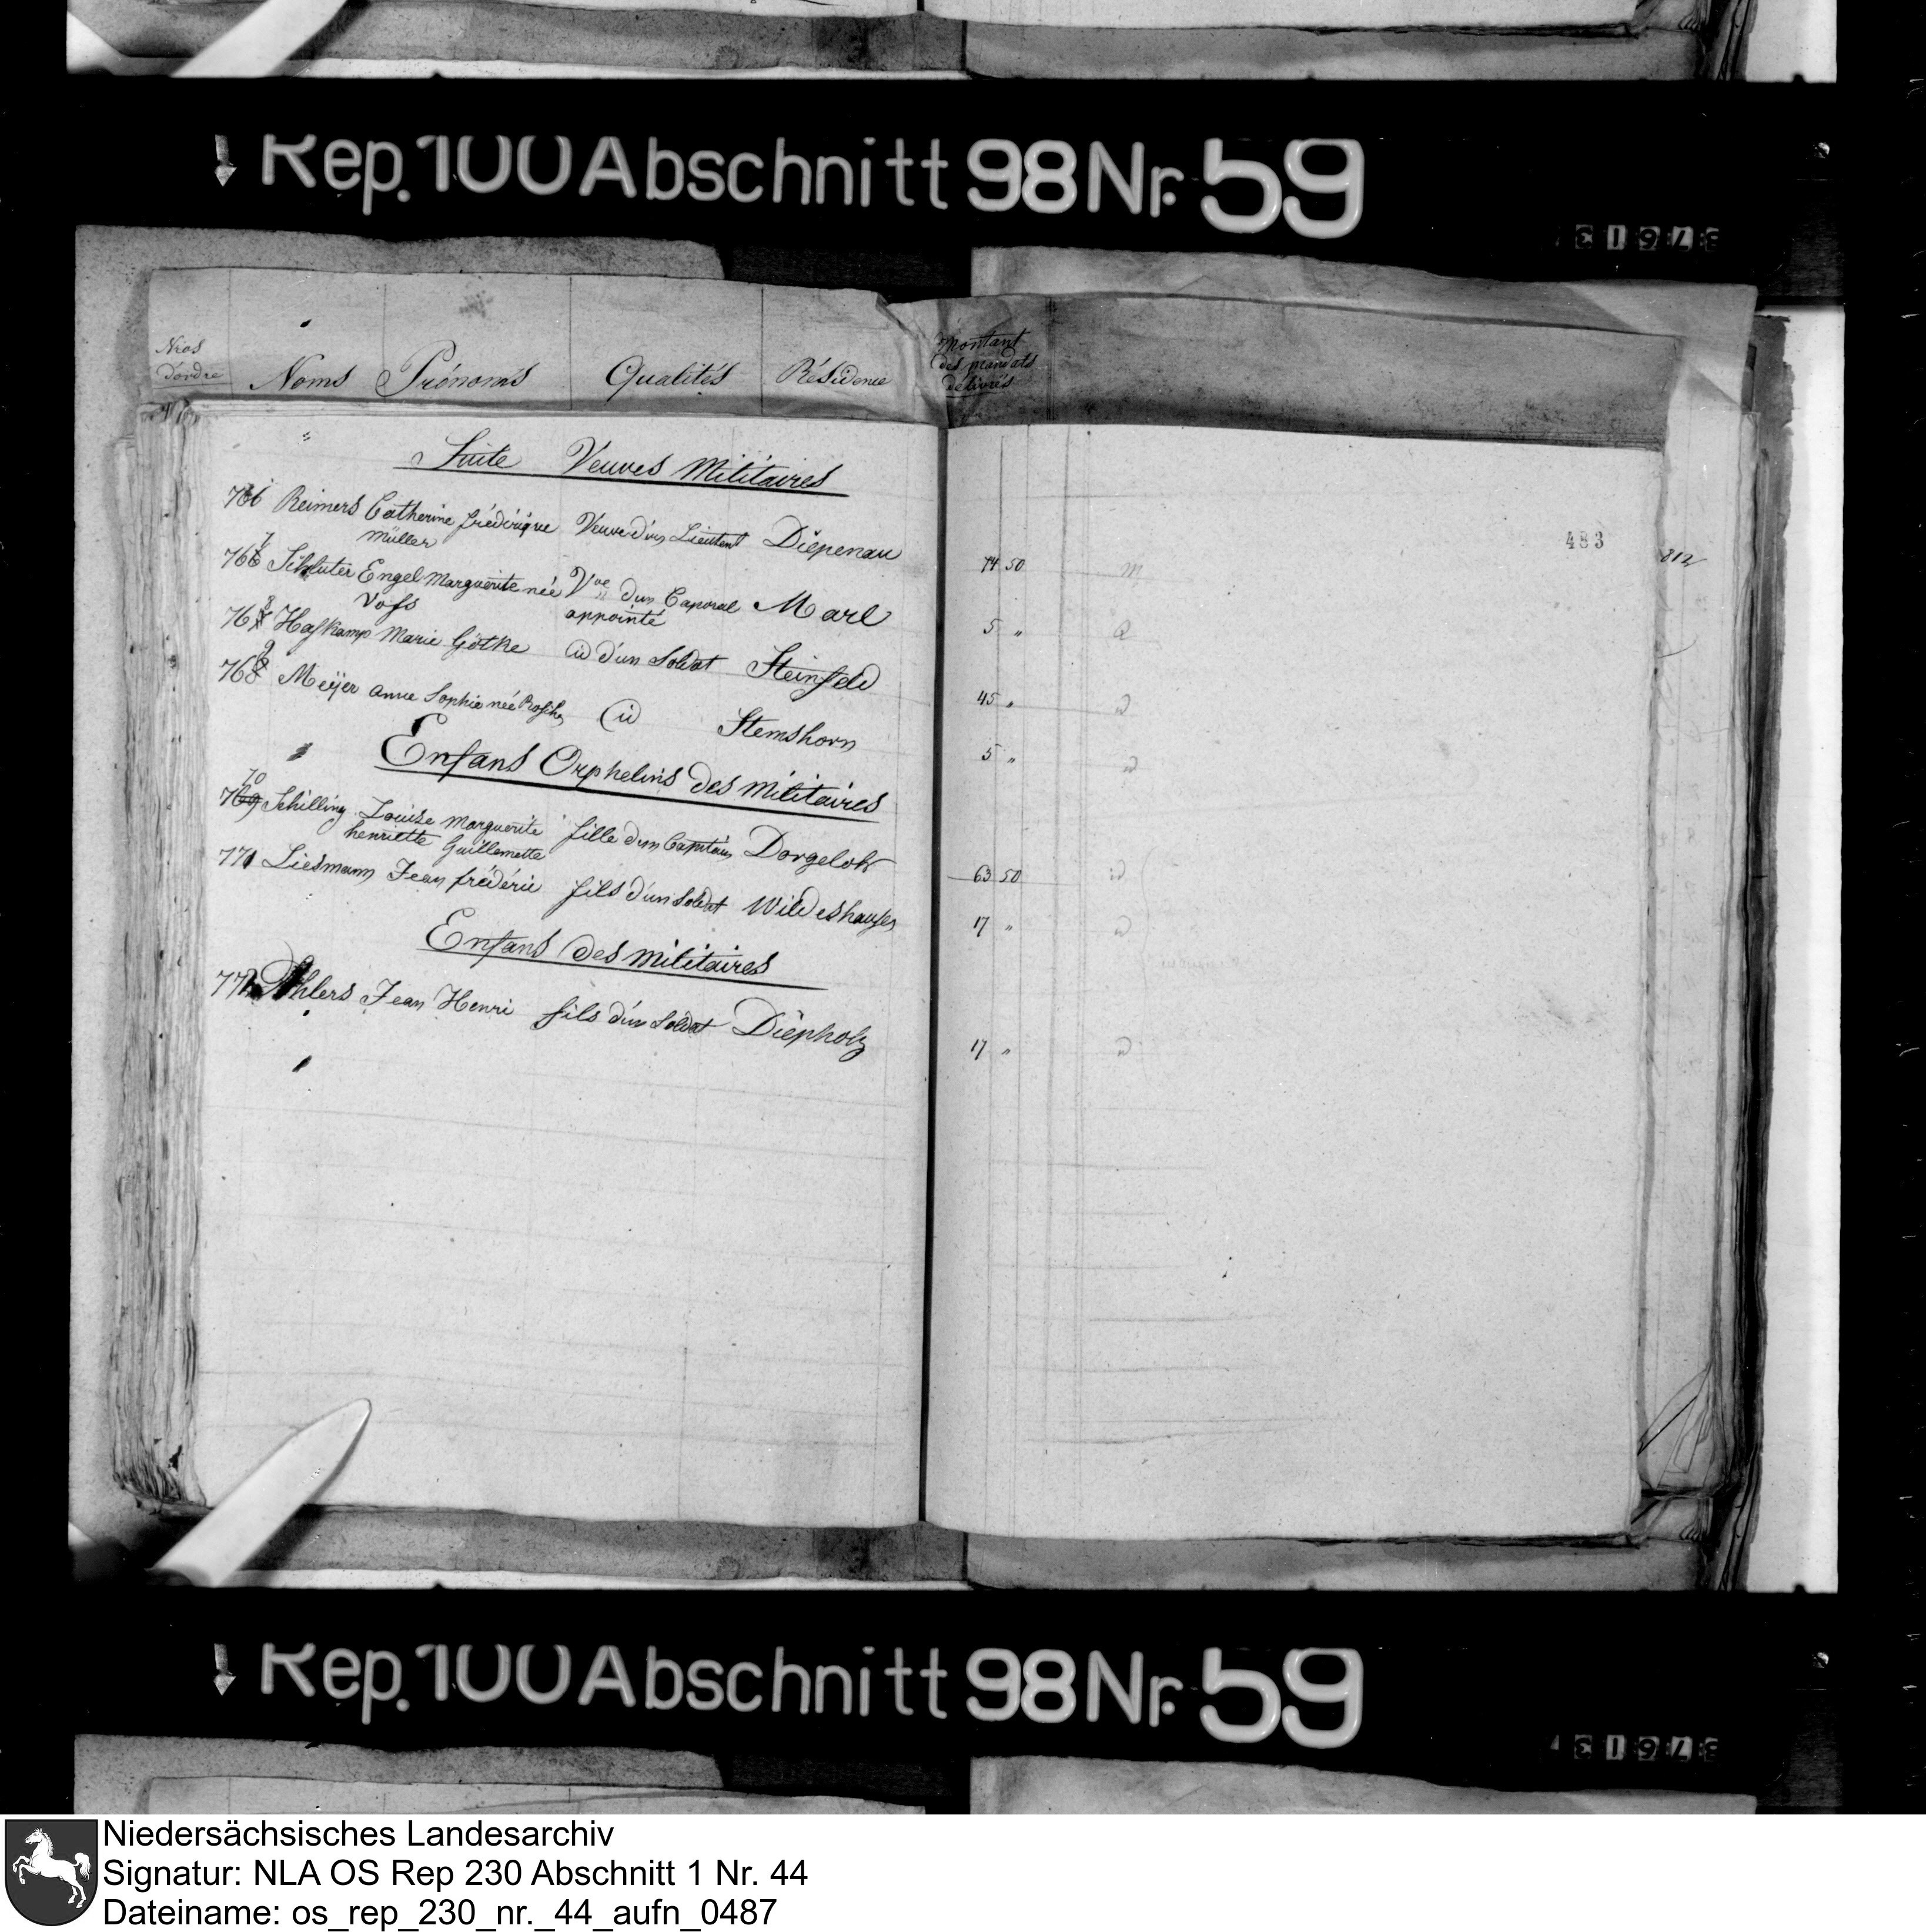 Rep. 100 Abschnitt 98 Nr. 59
Nros d'ordre Noms Prénoms Qualités Résidence Montant des mandats délivrés
Suite Veuves Militaires
483
812
766 Reimers Catherine frédérique Veuve d'un Lieutent Diepenau 74 50
Müller
767 Schluter Engel Marguerite née Vve d'un Caporal Marl 5 "
Voss appointé
768 Hafkamp Marie Göthe id d'un Soldat Steinfeld 45 "
769 Meÿer anne Sophie née id Stemshorn 5 "
Enfans Orphelins des militaires
770 Schilling Louise Marguerite fille d'un Capitain Dorgeloh 63 50
henriette Guillemette
771 Liesmann Jean frédéric fils d'un Soldat Wildeshausen 17 "
Enfans des militaires
772 Ahlers Jean Henri fils d'un Soldat Diepholz 17 "
Rep. 100 Abschnitt 98 Nr. 59
Niedersächsisches Landesarchiv
Signatur: NLA OS Rep 230 Abschnitt 1 Nr. 44
Dateiname: os_rep_230_nr._44_aufn_0487